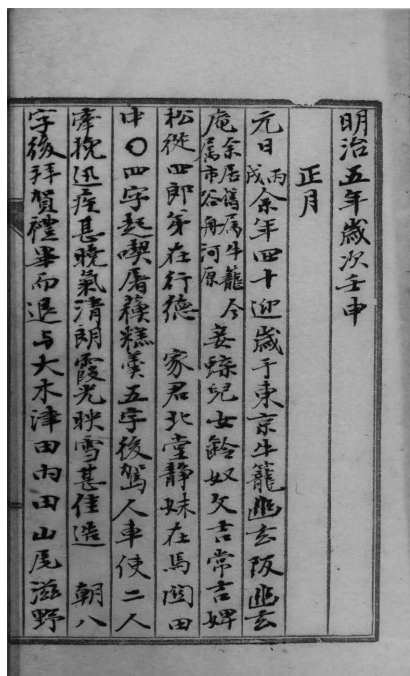 明治五年歳次壬申
正月
元日丙戌余年四十迎歳于東京牛籠幽玄阪幽玄
庵余居舊属牛籠今属市谷舟河原妾蝝兒女齡奴久吉常吉婢
松從四郎弟在行徳 家君北堂静妹在馬関田
中〇四字起喫屠蘓糕羹五字後駕人車使二人
牽挽迅疾甚曉氣清朗霞光映雪甚佳造 朝八
字後拜賀禮畢而退与大木津田両田山尾滋野